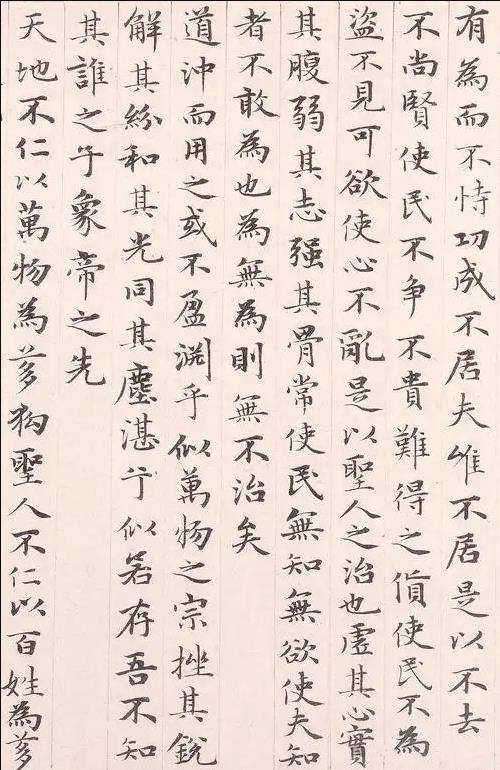 有為而不恃功成不居夫唯不居是以不去
不尚賢使民不争不貴難得之貨使民不為
盜不見可欲使心不亂是以聖人之治也虛其心實
其腹弱其志强其骨常使民無知無欲使夫知
者不敢為也為無為則無不治矣
道沖而用之或不盈淵乎似萬物之宗挫其銳
解其紛和其光同其塵湛兮似若存吾不知
其誰之子象帝之先
天地不仁以萬物為芻狗聖人不仁以百姓為芻